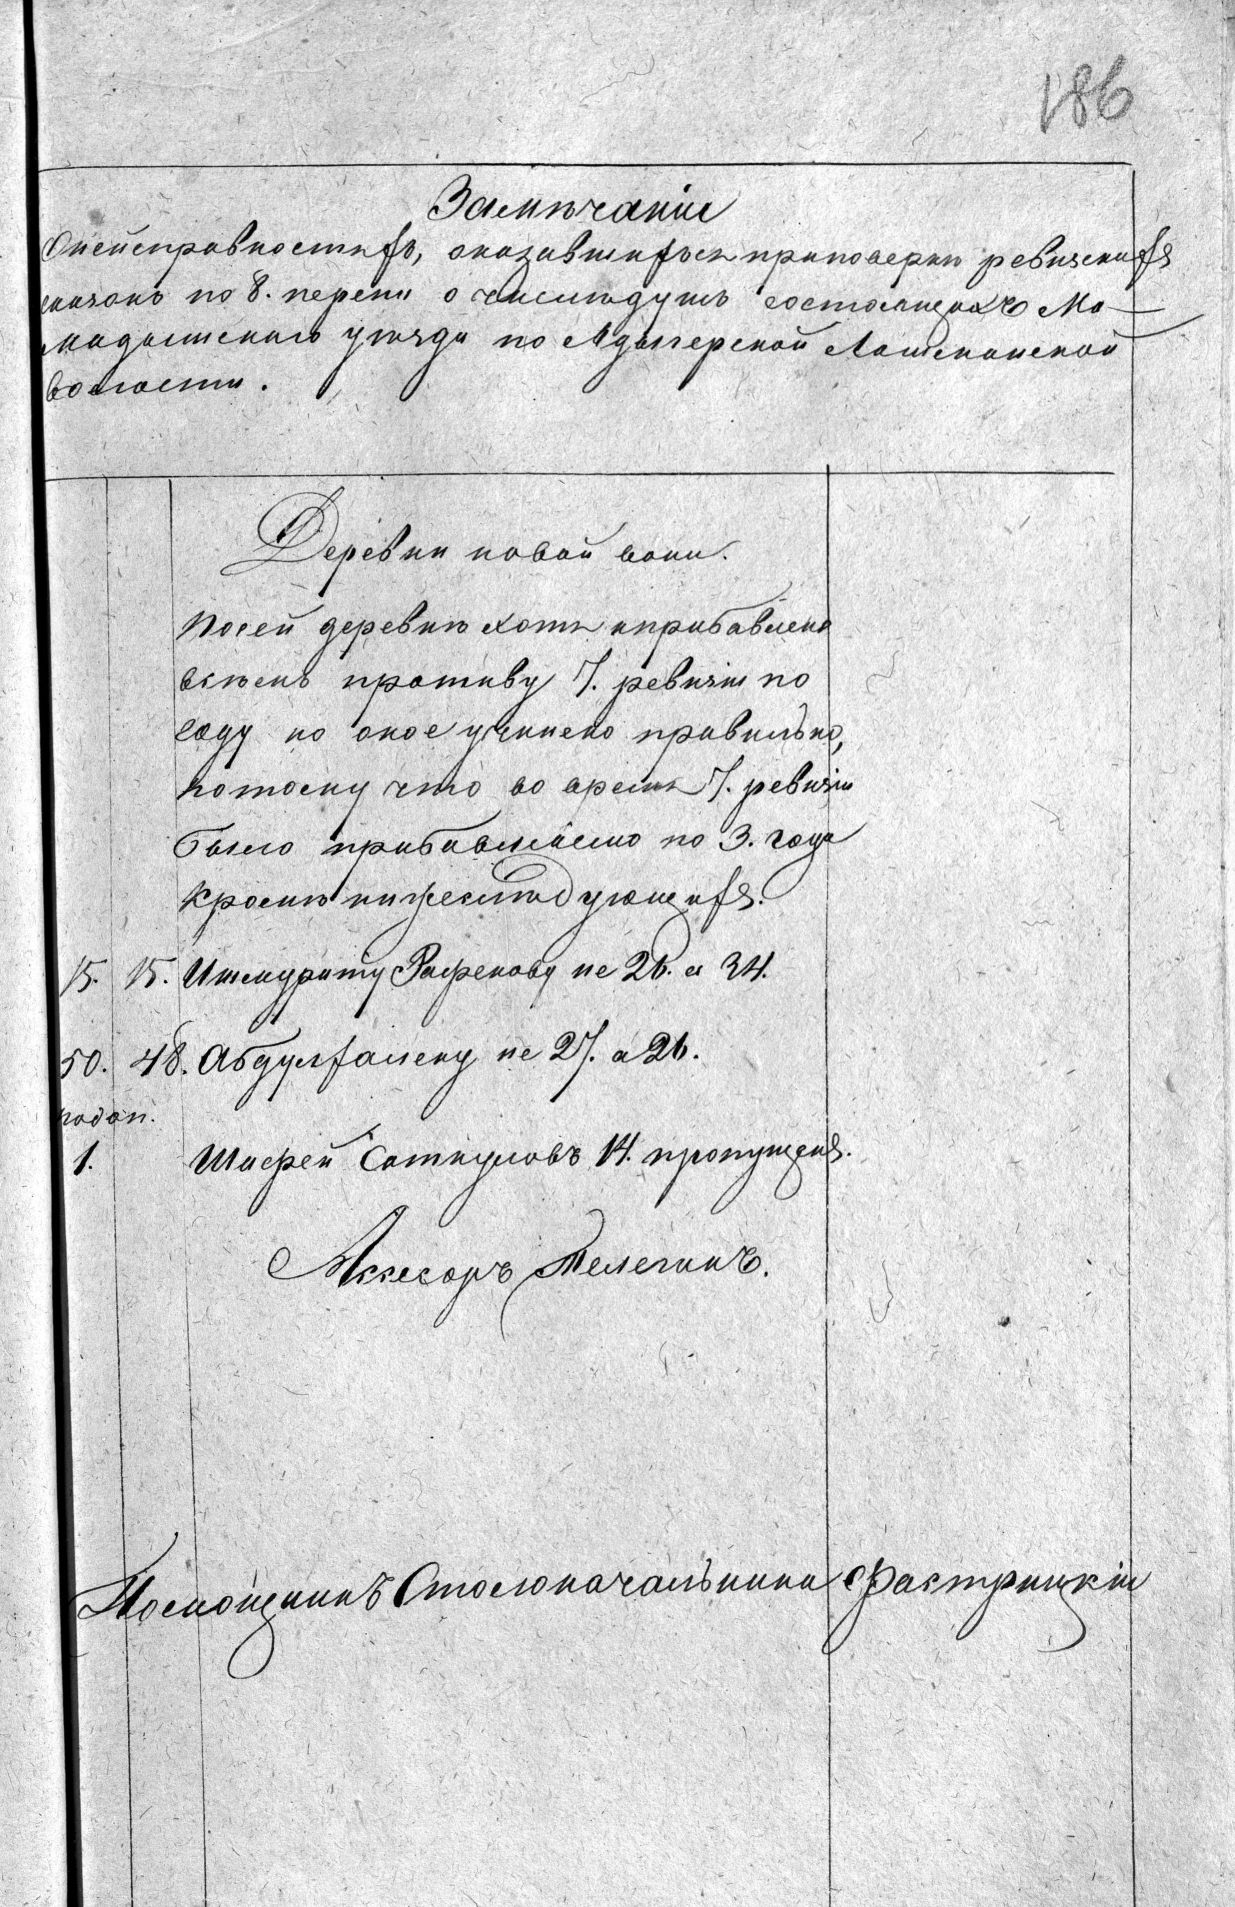 186
Замѣчаніи
О неисправностяхъ, оказавшихъся при поверкѣ ревизскихъ
сказокъ по 8. переписи о числѣ душъ состоящихъ Ма-
мадышскаго уѣзда по Адаперской Лашманской
волости.
Деревни новой
По сей деревнѣ хотя и прибавлено
всѣмъ противу 7. ревизіи по
году но оное учинено правильно,
потому что во время 7. ревизіи
было прибавляемо по 3. года
кромѣ нижеслѣдующихъ.
15. 15. Ишмурату Рафекову не 26. а 34.
50. 48. Абдулхалеку не 27. а 26.
подоп.
1. Шафей Саткуловъ 14. пропущенъ.
Ассесоръ Телегинъ.
Помощникъ Столоначальника